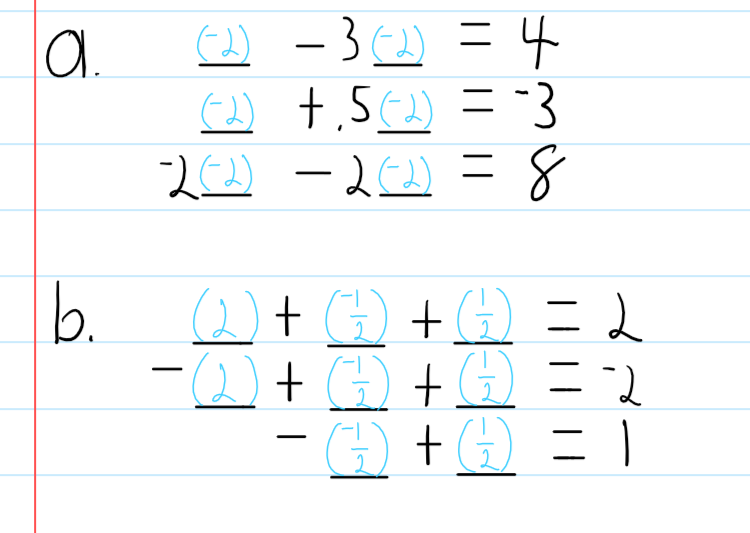 a. (-2) - 3(-2) = 4
(-2) + .5(-2) = -3
-2(-2) - 2(-2) = 8
b. (2) + (-1/2) + (1/2) = 2
-(2) + (-1/2) + (1/2) = -2
- (-1/2) + (1/2) = 1